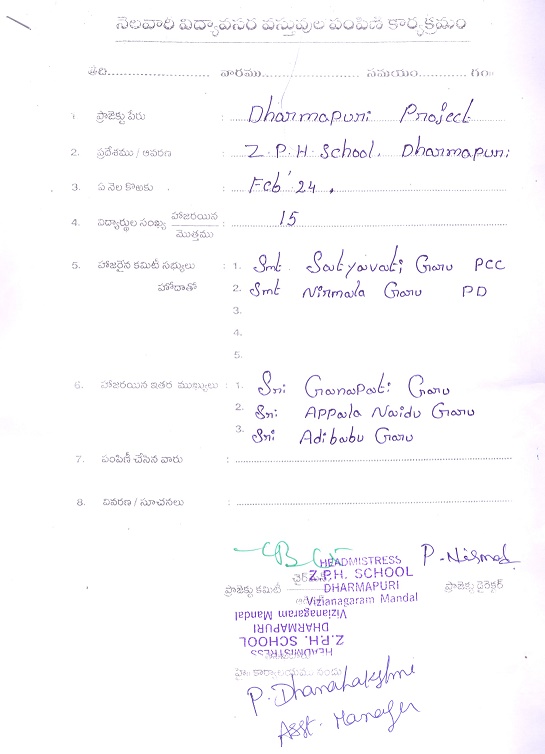 నెలవారి విద్యావసర వస్తువుల పంపిణి కార్యక్రమం
తేది.................... వారము.................... సమయం............ గం॥
1. ప్రాజెక్టు పేరు : Dharmapuri Project
2. ప్రదేశము / ఆవరణ : Z.P.H School. Dharmapuri
3. ఏ నెల కొఱకు : Feb'24.
4. విద్యార్థుల సంఖ్య హాజరయిన / మొత్తము : 15
5. హాజరైన కమిటీ సభ్యులు : 1. Smt Satyavati Garu PCC
హోదాతో 2. Smt Nirmala Garu PD
3.
4.
5.
6. హాజరయిన ఇతర ముఖ్యులు : 1. Sri Ganapati Garu
2. Sri Appala Naidu Garu
3. Sri Adibabu Garu
7. పంపిణీ చేసిన వారు :
8. వివరణ / సూచనలు :
P. Nirmal
HEADMISTRESS
Z.P.H. SCHOOL
ప్రాజెక్టు కమిటీ DHARMAPURI ప్రాజెక్టు డైరెక్టర్
Vizianagaram Mandal
Vizianagaram Mandal
DHARMAPURI
Z.P.H. SCHOOL
HEADMISTRESS
హెం కార్యాలయము నందు
P. Dhanalakshmi
Asst. Manager